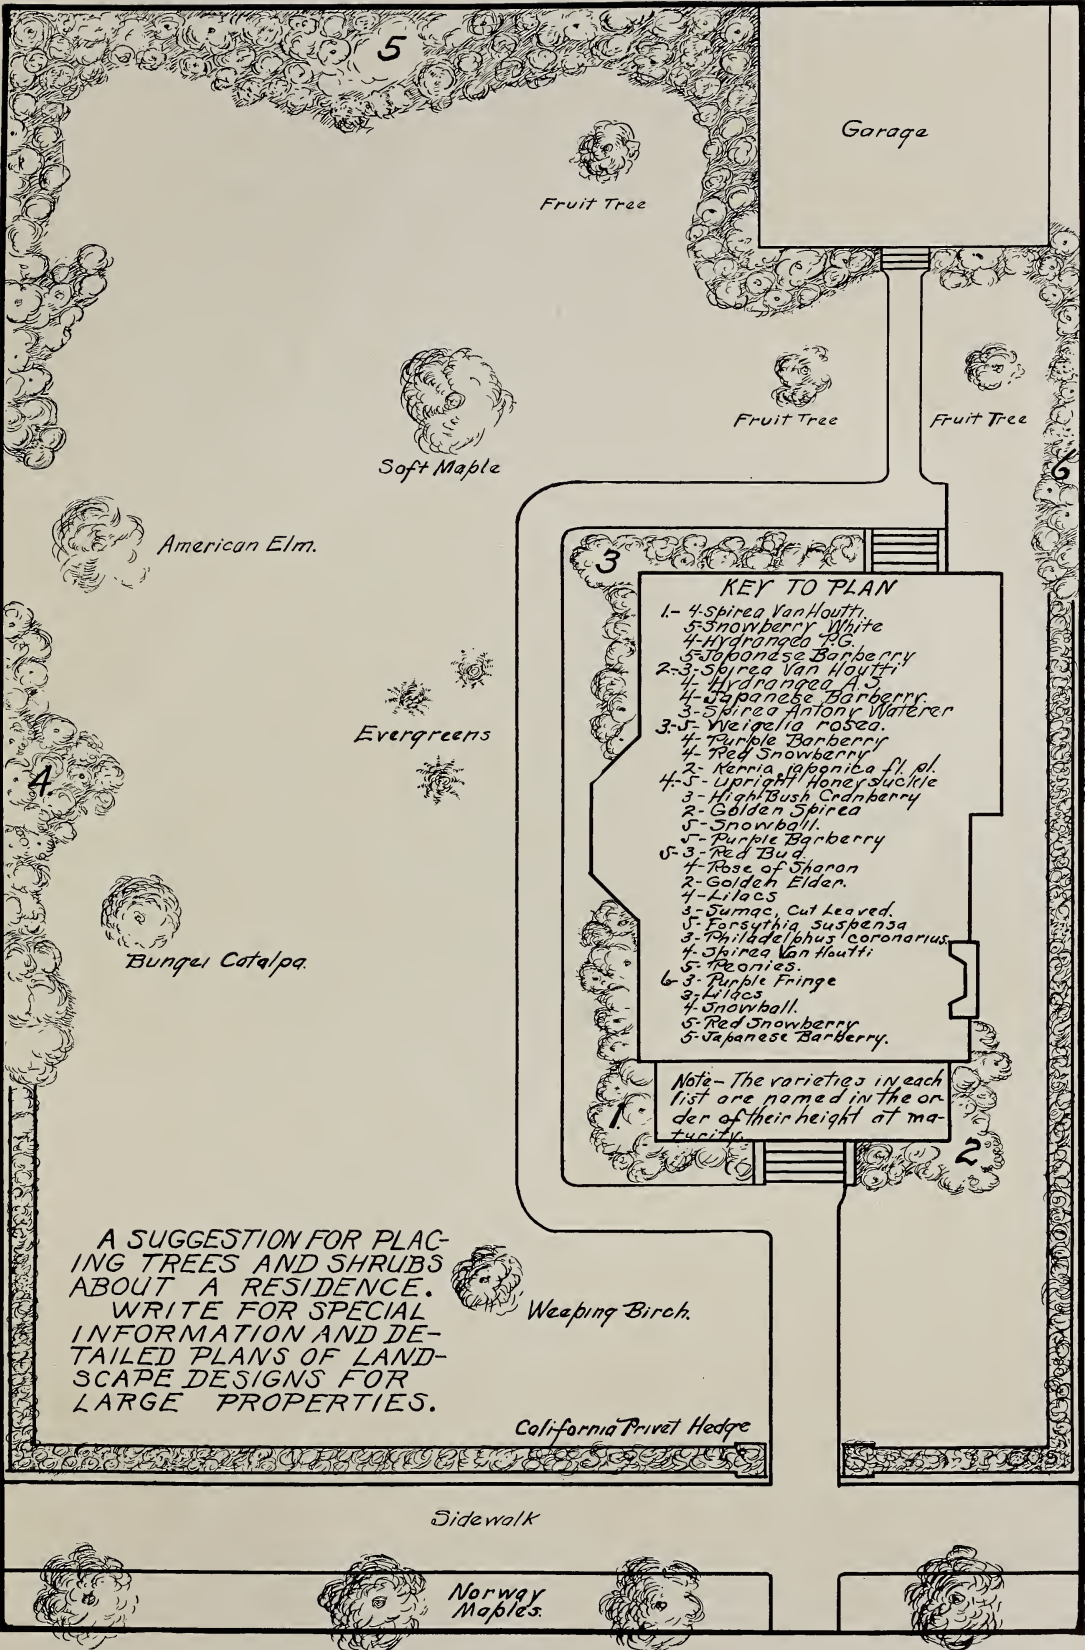 5
Garage
Fruit Tree
Soft Maple
Fruit Tree
Fruit Tree
6
American Elm.
3
KEY TO PLAN
1.- 4-Spirea VanHoutti.
5-Snowberry White
4-Hydrangea P.G.
5-Japonese Barberry
2-3-Spirea Van Houtti
4- Hydrangea A.S.
4-Japanese Barberry.
3-Spirea Antony Waterer
3.-5- Weigelia rosea.
4- Purple Barberry
4- Red Snowberry
2- Kerria Japonica fl. pl.
4.-5- Upright Honeysuckle
3- High Bush Cranberry
2- Golden Spirea
5-Snowball.
5- Purple Barberry
5-3-Red Bud
4-Rose of Sharon
2-Golden Elder.
4-Lilacs
3-Sumac, Cut Leaved.
5-Forsythia Suspensa
3-Philadelphus coronarius
4-Spirea Van Houtti
5-Peonies.
6-3-Purple Fringe
3-Lilacs
4-Snowball.
5-Red Snowberry
5-Japanese Barberry.
Note- The varieties in each
list are named in the or-
der of their height at ma-
turity.
Evergreens
4
Bungei Catalpa.
1.
2
A SUGGESTION FOR PLAC-
ING TREES AND SHRUBS
ABOUT A RESIDENCE.
WRITE FOR SPECIAL
INFORMATION AND DE-
TAILED PLANS OF LAND-
SCAPE DESIGNS FOR
LARGE PROPERTIES.
Weeping Birch.
California Privet Hedge
Sidewalk
Norway
Maples.